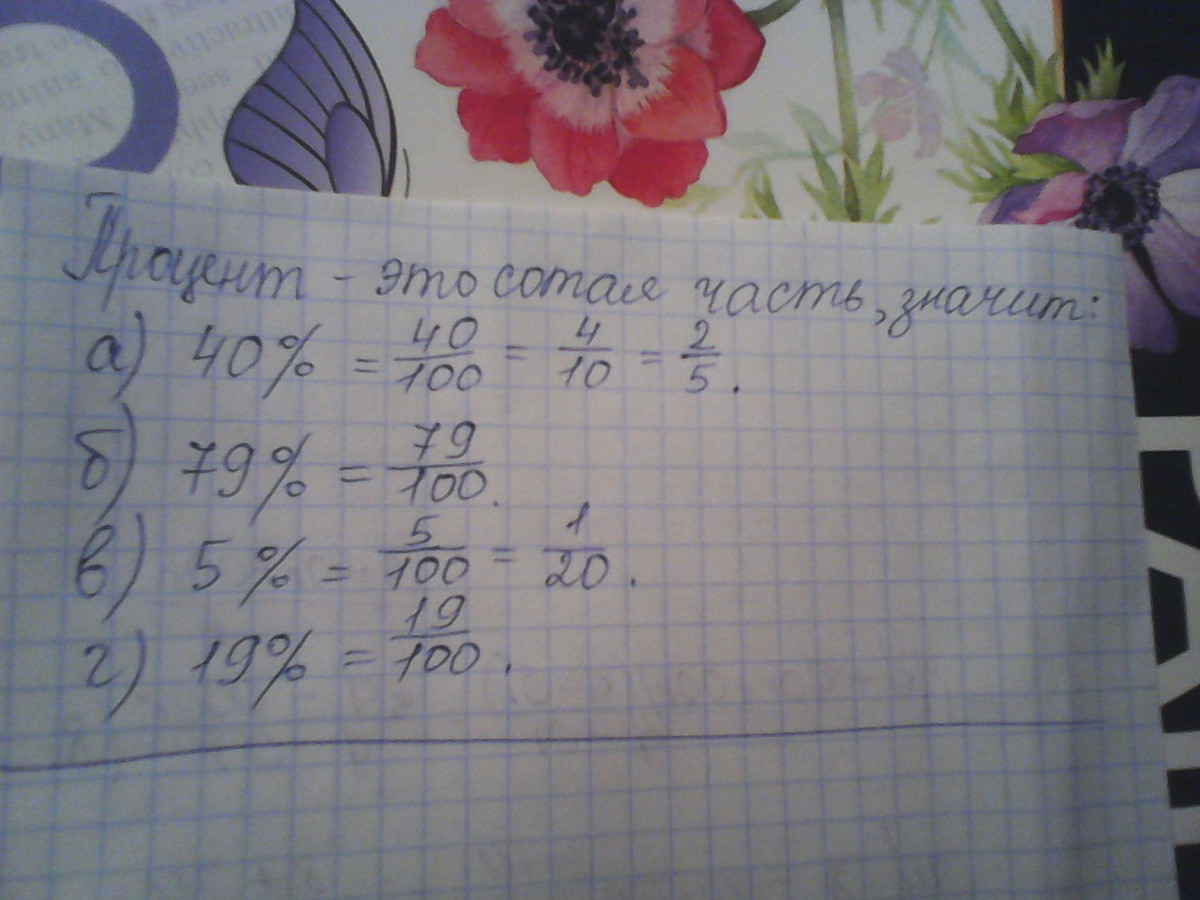 Процент - это сотая часть, значит:
а) 40% = 40/100 = 4/10 = 2/5.
б) 79% = 79/100.
в) 5% = 5/100 = 1/20.
г) 19% = 19/100.